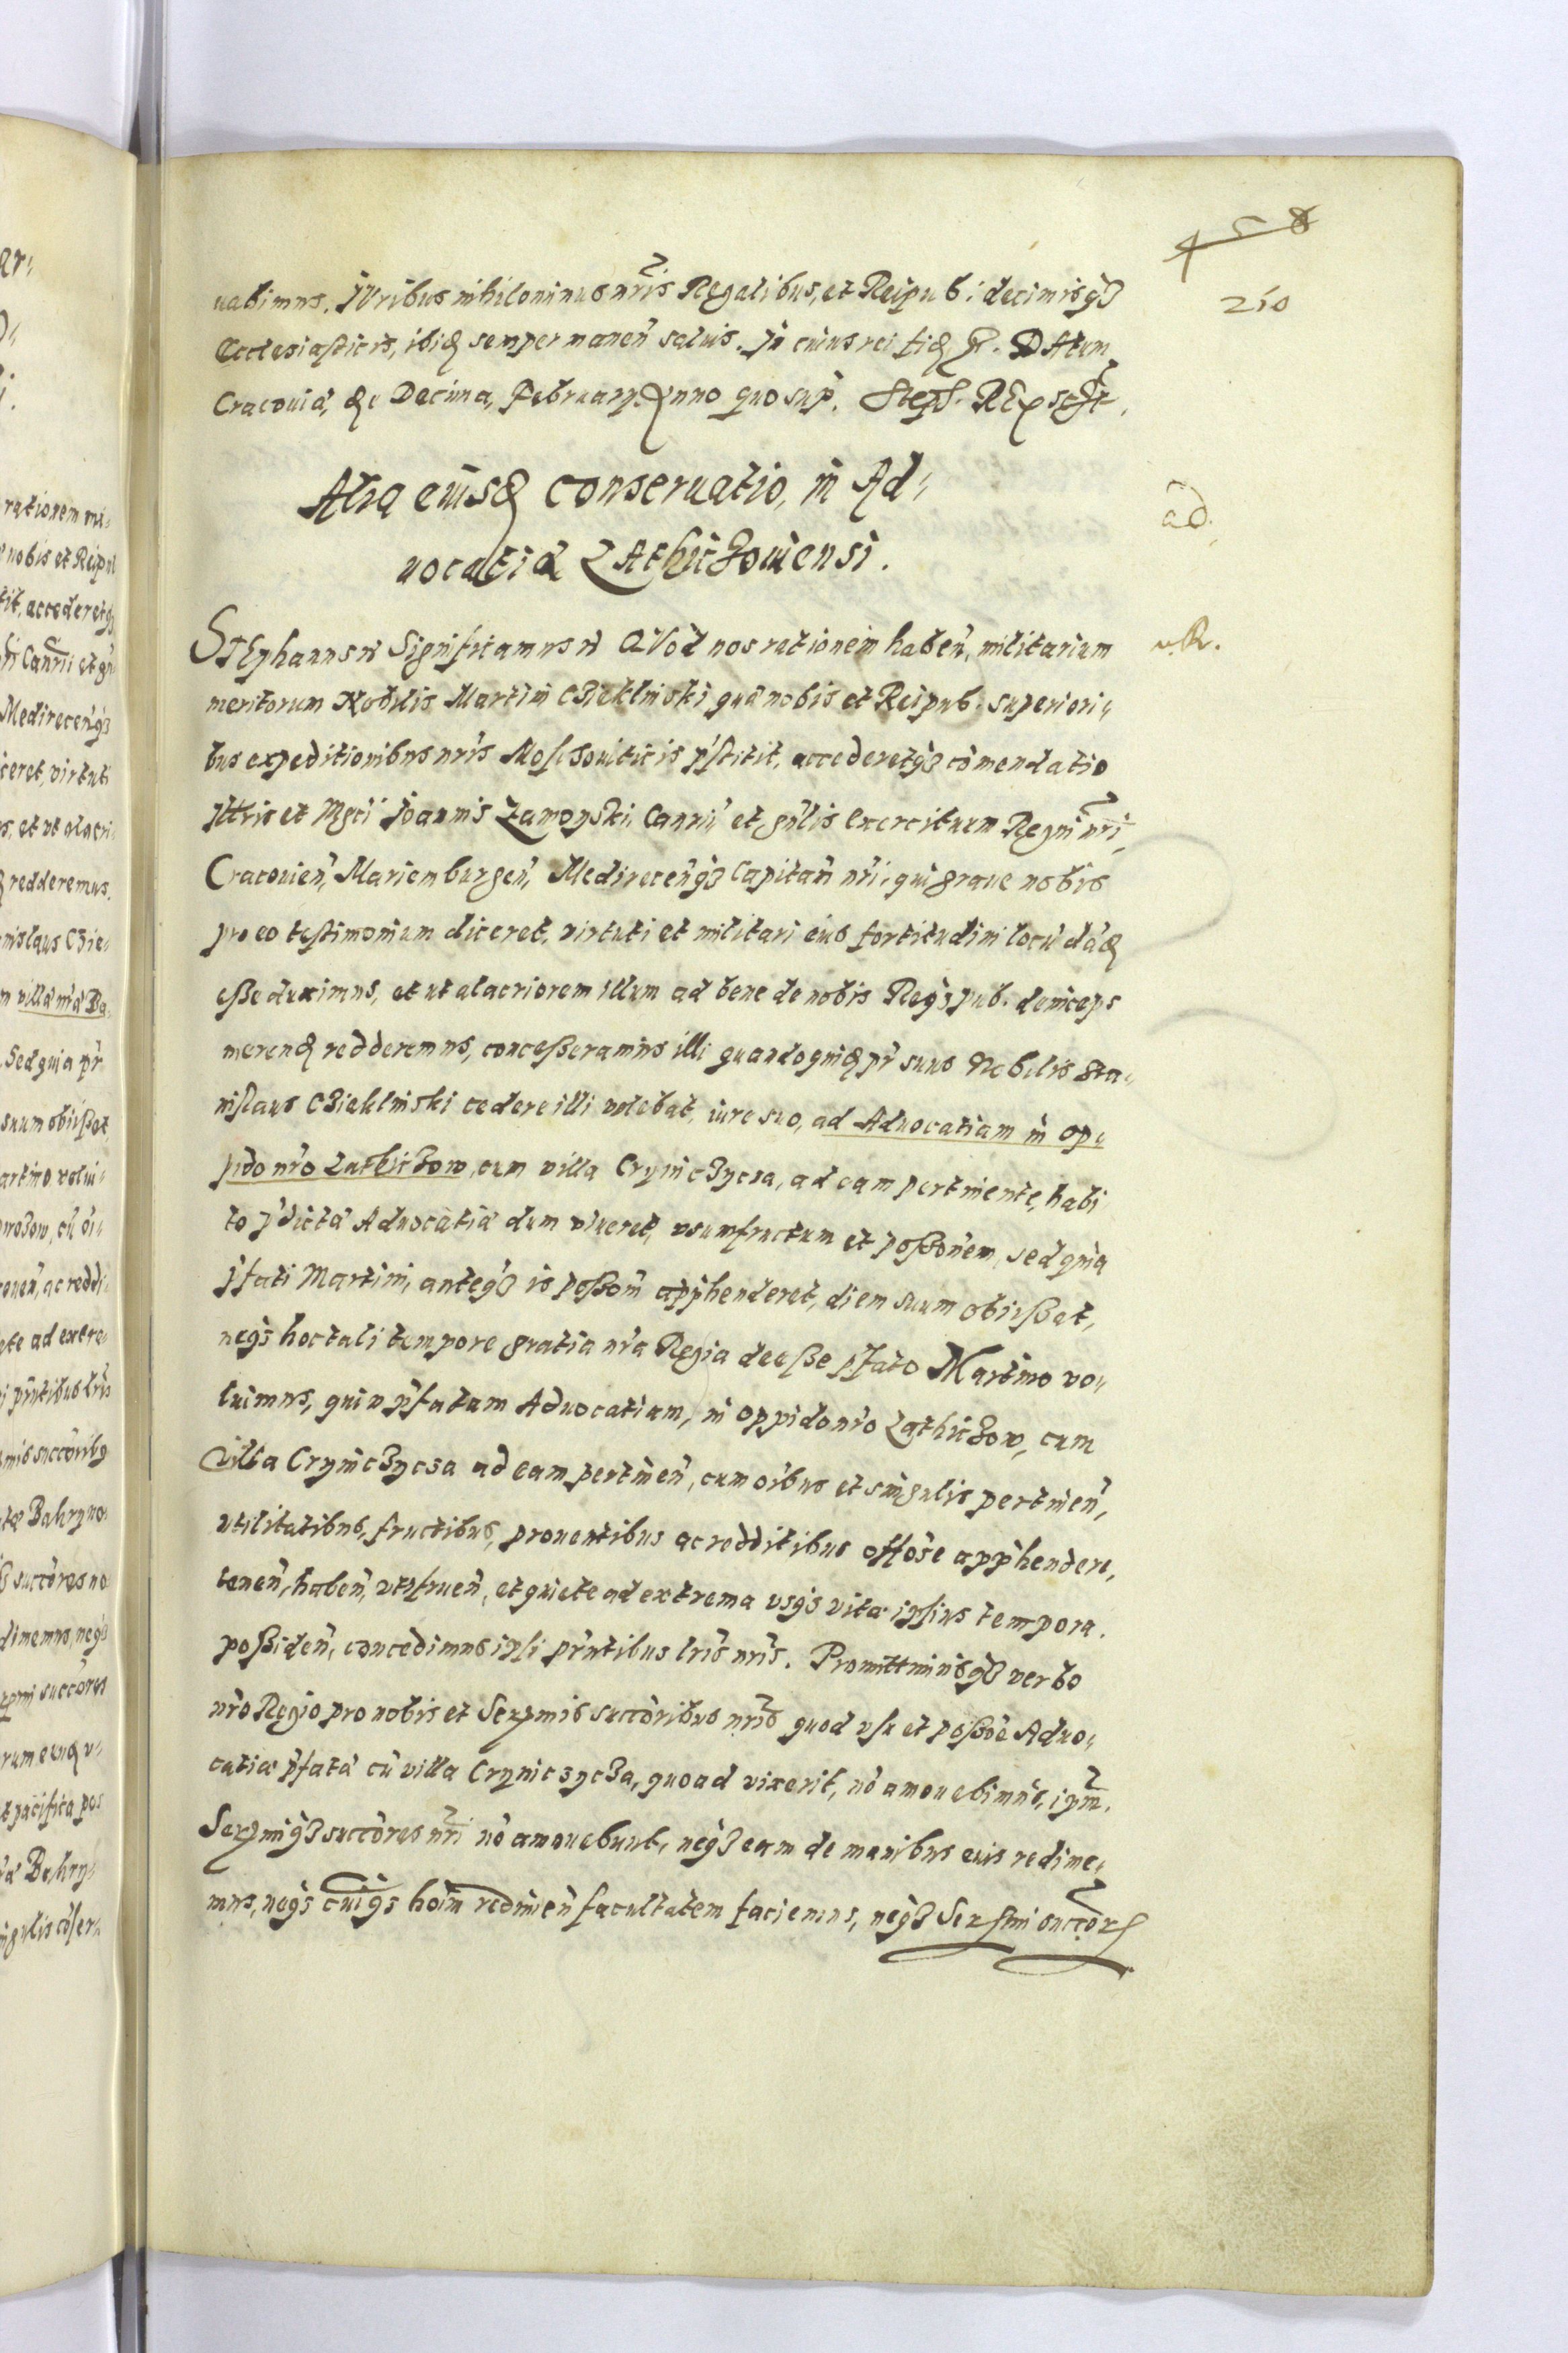 210
uabimus. JVribus nihilominus nr̃is Regalibus, et Reipub: decimisq3
Ecclesiasticis, ibiđ semper manen̄ saluis. In cuius rei fiđ etc. DAtum
Cracouiæ, die Decima, February Anno quo sup̃. Steph. REx sc̃st.
Alia eiusđ conseruatio, in Ad-
uocatia LAthiczouiensi.
ad.
STEphanus etc Significamus etc QVod nos rationem haben̄, militarium
v.R.
meritorum Nobilis Martini CZieklinski quæ nobis et Reipub: superiori-
bus expeditionibus nr̃is Moschouiticis p̃stitit, accederetq3 cõmendatio
Jllris et Mgci Joannis Zamoyski, Cancrij et gñlis Exercituum Regni nr̃i,
Cracouien̄, Mariemburgen̄, Medirecen̄q3 Capitan̄ nr̃i, qui graue nobis
pro eo testimonium diceret, virtuti et militari eius fortitudini locũ dãđ
eße duximus, et ut alacriorem illum ad bene de nobis Req3pub. deinceps
merenđ redderemus, conceßeramus illi quandoquiđ pr̃ suus Nobilis Sta-
nislaus CZieklinski cedere illi volebat, iure suo, ad Aduocatiam in op-
pido nr̃o LathicZow, cum villa CryniczyczA, ad eam pertinente, habi-
to p̃dictæ Aduocatiæ dum viueret, vsumfructum et poßonem, sed quia
p̃fati Martini, anteq3 is poßom̃ app̃henderet, diem suum obijßet,
neq3 hoc tali tempore gratia nr̃a Regia deeße p̃fato Martino vo-
luimus, quin p̃fatam Aduocatiam, in oppido nr̃o LathicZow, cum
villa Cryniczycza ad eam pertinen̄, cum oĩbus et singulis pertinen̄,
vtilitatibus, fructibus, prouentibus ac redditibus oĩose app̃hendere,
tenen̄, haben̄, vtifruen̄, et quiete ad extrema vsq3 vitæ ipsius tempora.
poßiden̄, concedimus ipsi pr̃ntibus lr̃is nr̃is. Promittimusq3 verbo
nr̃o Regio pro nobis et Serẽmis succoribus nr̃is quod vsu et poßõe Aduo-
catiæ p̃fatæ cũ villa CryniczycZa, quoad vixerit, nõ amouebimus, ip̃m,
Serẽmiq3 succores nr̃i nõ amouebunt, neq3 eam de manibus eius redime-
mus, neq3 cuiq3 hoĩm redimen̄ facultatem faciemus, neq3 Serẽmi succores